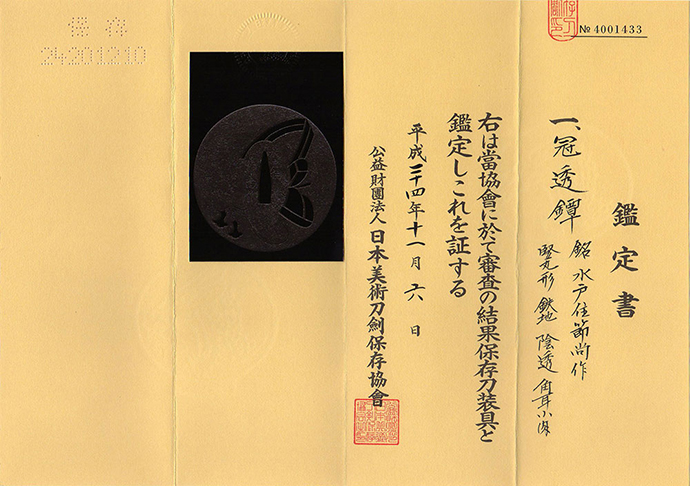 №4001433
鑑定書
一、冠透鐔
銘 水戸住節尚作
竪丸形 鉄地 陰透 角耳小肉
右は當協會に於て審査の結果保存刀装具と
鑑定しこれを証する
平成二十四年十一月六日
公益財團法人 日本美術刀劍保存協會
保存
24201210